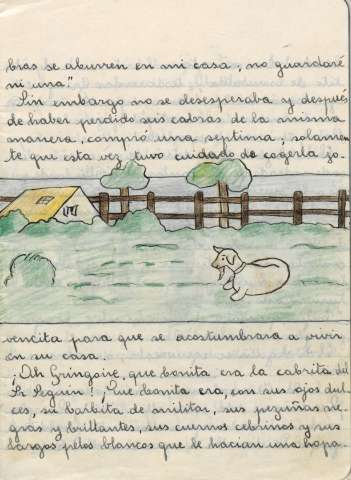 bras se aburren en mi casa, no guardaré
ni una."
Sin embargo no se desesperaba y después
de haber perdido seis cabras de la misma
manera, compró una septima; solamen
te que esta vez tuvo cuidado de cogerla jo-
vencita para que se acostumbrara a vivir
en su casa.
¡Oh Gringoire, que bonita era la cabrita del
Sr Seguin! ¡Que bonita era, con sus ojos dul-
ces, su barbita de militar, sus pezuñas ne-
gras y brillantes, sus cuernos cebrinos y sus
largos pelos blancos que le hacian una hopa-